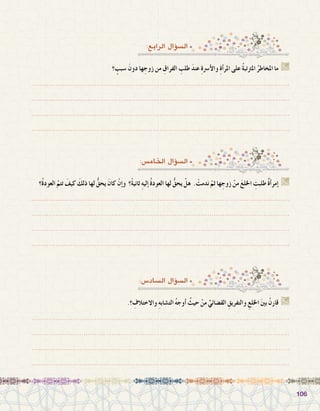 السؤال الرابع:
ما المخاطرُ المترتبةُ على المرأةِ والأسرةِ عندَ طلبِ الفراقِ من زوجِها دونَ سببٍ؟
السؤال الخامس:
إمرأةٌ طلبتِ الخلعَ منْ زوجِها ثمَّ ندمتْ. هلْ يحقُّ لها العودةُ إليهِ ثانيةً؟ وإنْ كانَ يحقُّ لها ذلكَ كيفَ تتمُّ العودةُ؟
السؤال السادس:
قارنْ بينَ الخلعِ والتفريقِ القضائيِّ منْ حيثُ أوجهُ التشابهِ والاختلافِ؟.
106